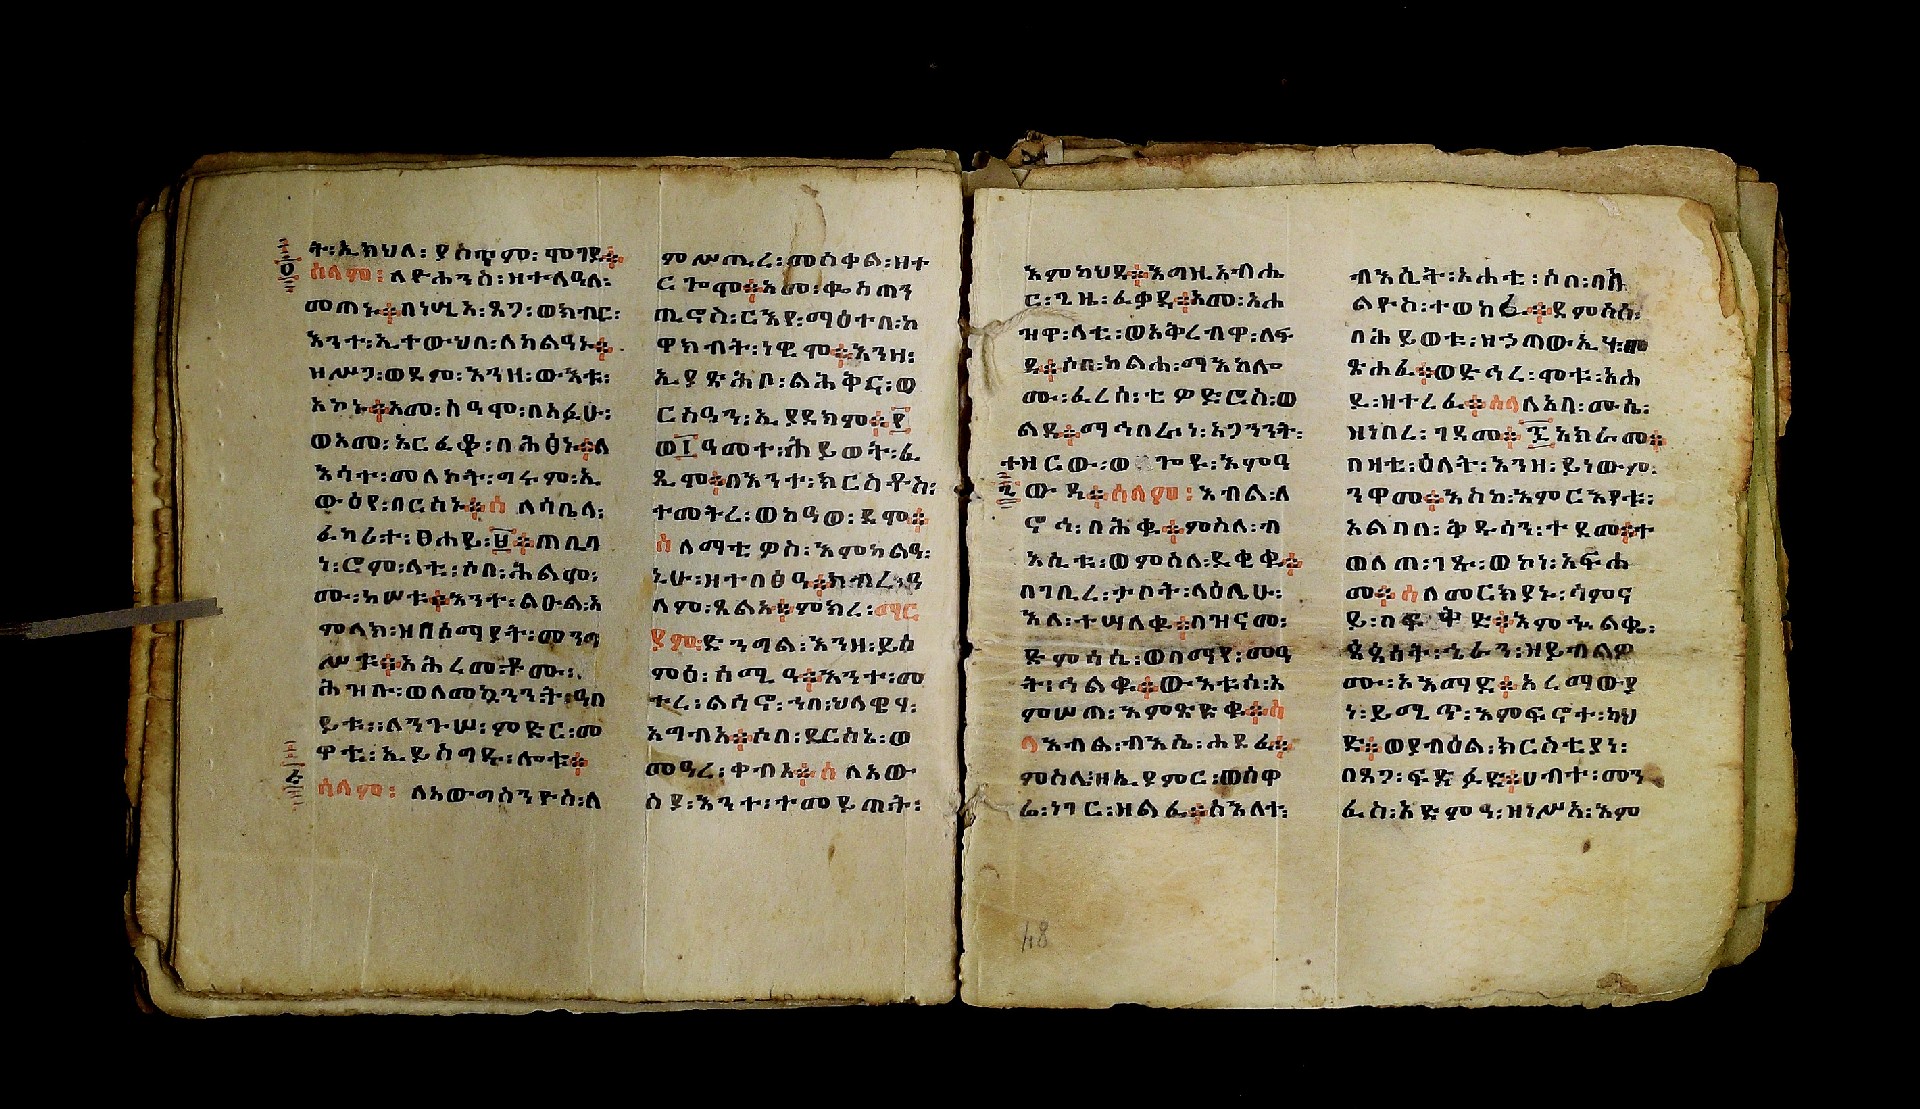 ት፡ኢክህለ፡ያስጥም፡ሞገዱ።
ሰላም፡ለዮሐንስ፡ዘተለዓለ፡
መጠኑ።በነሢአ፡ጸጋ፡ወክብር፡
እንተ፡ኢተውህበ፡ለካልዓኑ።
ዝሥጋ፡ወደም፡እንዘ፡ውእቱ፡
እኮኑ።አመ፡ስዓሞ፡በአፉሁ፡
ወአመ፡አርፈቆ፡በሕፅኑ።ለ
እሳተ፡መለኮት፡ግሩም፡ኢ
ውዕየ፡በርስኑ።ሰለሳቤላ፡
ፈካሪተ፡ፀሐይ፡፱።ጠቢባ
ነ፡ሮም፡ለቱ፡ሶበ፡ሕልሞ፡
ሙ፡ከሠቱ።እንተ፡ልዑል፡አ
ምላክ፡ዘበሰማያት፡መንግ
ሥቱ።አሕረመ፡ቶሙ፡
ሕዝቡ፡ወለመኳንንት፡ዓበ
ይቱ፡ለንጉሠ፡ምድር፡መ
ዋቲ፡ኢይስግዱ፡ሎቱ።
ሰላም፡ለአውግስንዮስ፡ለ
ምሥጢረ፡መስቀል፡ዘተ
ርጐሞ።አመ፡ቈስጠን
ጢኖስ፡ርእየ፡ማዕተበ፡ከ
ዋክብት፡ነዊሞ።እንዘ፡
ኢያጽሕቦ፡ልሕቅና፡ወ
ርስዓን፡ኢያደክም።፻
ወ፲ዓመተ፡ሕይወት፡ፈ
ጺሞ።በእንተ፡ክርስቶስ፡
ተመትረ፡ወከዓወ፡ደሞ።
ሰለማቲዎስ፡እምካልዓ፡
ኒሁ፡ዘተበፅዓ።ክብረ፡ዓ
ለም፡ጸልአ።ምክረ፡ማር
ያም፡ድንግል፡እንዘ፡ይሰ
ምዕ፡ሰሚዓ።እንተ፡መ
ተረ፡ልሳኖ፡ኀበ፡ህላዌሃ፡
አግብአ።ሶበ፡ደርሰኒ፡ወ
መዓረ፡ቀብአ።ሰለአው
ስያ፡እንተ፡ተመይጠት፡
እምካህዱ።እግዚአብሔ
ር፡ጊዜ፡ፈቃዱ።አመ፡አሐ
ዝዋ፡ለቲ፡ወአቅረብዋ፡ለፍ
ዳ።ሶበ፡ከልሐ፡ማእከሎ
ሙ፡ፈረሰ፡ቴዎድሮስ፡ወ
ልዱ።ማኅበራነ፡አጋንንት፡
ተዝርው፡ወጐዩ፡እምዓ
ውዱ።ሰላም፡እብል፡ለ
ኖኅ፡በሕቁ።ምስለ፡ብ
እሲቱ፡ወምስለ፡ደቂቁ።
በገቢረ፡ታቦት፡ላዕሌሁ፡
እለ፡ተሣለቁ።በዝናመ፡
ድምሳሴ፡ወበማየ፡መዓ
ት፡ኃልቁ።ውእቱሰ፡አ
ምሠጠ፡እምጽድቁ።ሰ
ላእብል፡ብእሴ፡ሐደፈ።
ምስለ፡ዘኢያምር፡ወሰዋ
ሬ፡ነገር፡ዘልፈ።ስእለት፡
ብእሲት፡አሐቲ፡ሶበ፡በከ
ልዮስ፡ተወከፈ።ደምሰሰ፡
በሕይወቱ፡ዘኃጠውኢሃ፡
ጽሐፈ።ወድኅረ፡ሞቱ፡አሐ
ደ፡ዘተረፈ።ሰላለአቡ፡ሙሴ፡
ዝነበረ፡ገዳመ።፯አክራመ።
በዛቲ፡ዕለት፡እንዘ፡ይነውም፡
ንዋመ።እስከ፡አምርእዮቱ፡
አልባበ፡ቅዱሳን፡ተደመ።ተ
ወለጠ፡ገጹ፡ወኮነ፡አፍሐ
መ።ሰለመርክያኑ፡ሳምና
ይ፡በፍቅድ።እምኍልቈ፡
ጳጳሳት፡ኄራን፡ዘይብልዎ
ሙ፡አእማድ።አረማውያ
ነ፡ይሚጥ፡እምፍኖተ፡ካህ
ድ።ወያብዕል፡ክርስቲያነ፡
በጸጋ፡ፍድፉድ።ሀብተ፡መን
ፈስ፡አድምዓ፡ዘነሥአ፡እም
48